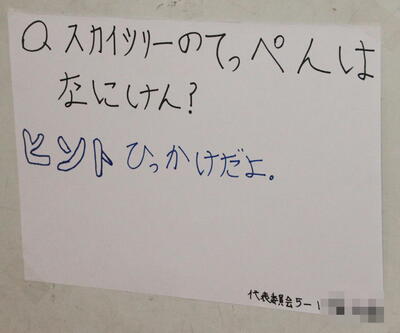 Q スカイツリーのてっぺんは
なにけん?
ヒント ひっかけだよ。
代表委員会5-1